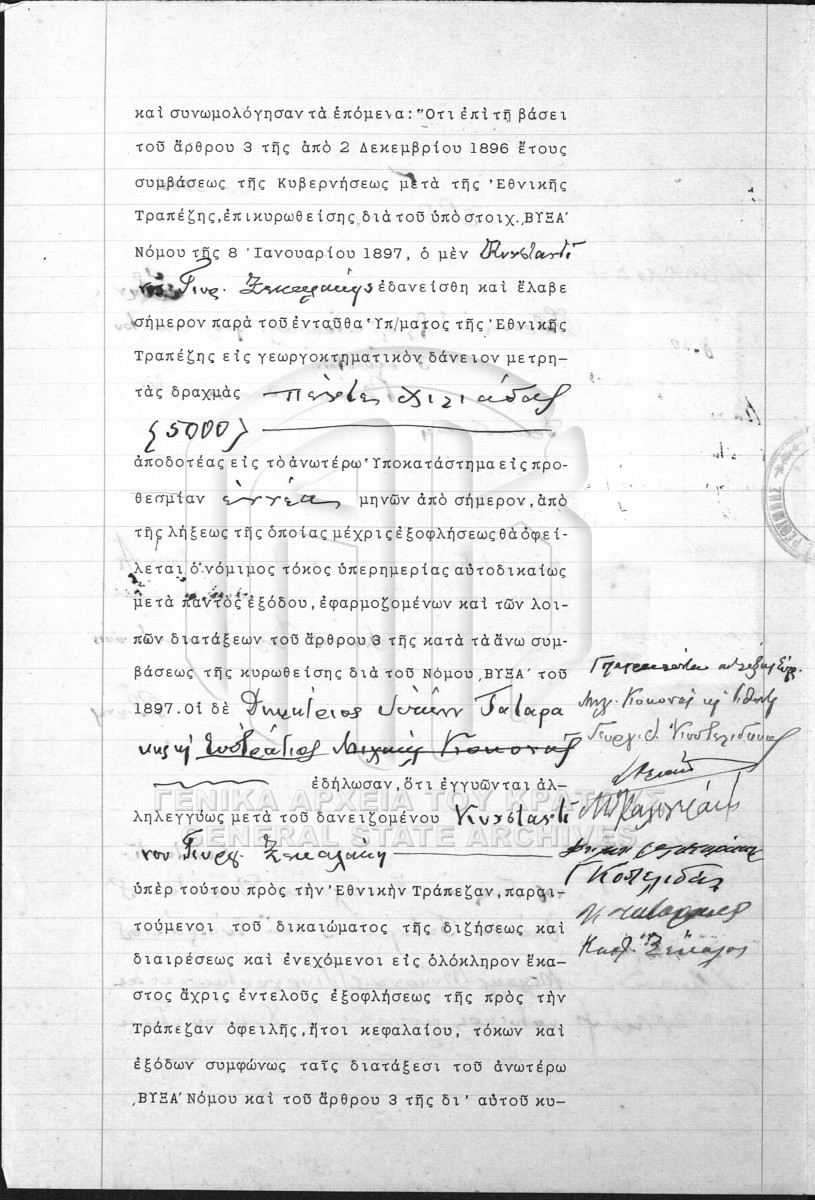 καὶ συνωμολόγησαν τὰ ἑπόμενα: Ὅτι ἐπὶ τῇ βάσει
τοῦ ἄρθρου 3 τῆς ἀπὸ 2 Δεκεμβρίου 1896 ἔτους
συμβάσεως τῆς Κυβερνήσεως μετὰ τῆς Ἐθνικῆς
Τραπέζης, ἐπικυρωθείσης διὰ τοῦ ὑπὸ στοιχ. ͵ΒΥΞΑ΄
Νόμου τῆς 8 Ἰανουαρίου 1897, ὁ μὲν Κωνσταντῖ
νος Γεωρ. ἐδανείσθη καὶ ἔλαβε
σήμερον παρὰ τοῦ ἐνταῦθα Ὑπ/ματος τῆς Ἐθνικῆς
Τραπέζης εἰς γεωργοκτηματικὸν δάνειον μετρη-
τὰς δραχμὰς πέντε χιλιάδας
{5000}
ἀποδοτέας εἰς τὸ ἀνωτέρω Ὑποκατάστημα εἰς προ-
θεσμίαν ἐννέα μηνῶν ἀπὸ σήμερον, ἀπὸ
τῆς λήξεως τῆς ὁποίας μέχρις ἐξοφλήσεως θὰ ὀφεί-
λεται ὁ νόμιμος τόκος ὑπερημερίας αὐτοδικαίως
μετὰ παντὸς ἐξόδου, ἐφαρμοζομένων καὶ τῶν λοι-
πῶν διατάξεων τοῦ ἄρθρου 3 τῆς κατὰ τὰ ἄνω συμ-
βάσεως τῆς κυρωθείσης διὰ τοῦ Νόμου ͵ΒΥΞΑ΄ τοῦ
1897. Οἱ δὲ Δημήτριος
Εὐστράτιος
ἐδήλωσαν, ὅτι ἐγγυῶνται ἀλ-
ληλεγγύως μετὰ τοῦ δανειζομένου Κωνσταντί
νου Γεωρ.
ὑπὲρ τούτου πρὸς τὴν Ἐθνικὴν Τράπεζαν, παραι-
τούμενοι τοῦ δικαιώματος τῆς διζήσεως καὶ
διαιρέσεως καὶ ἐνεχόμενοι εἰς ὁλόκληρον ἕκα-
στος ἄχρις ἐντελοῦς ἐξοφλήσεως τῆς πρὸς τὴν
Τράπεζαν ὀφειλῆς, ἤτοι κεφαλαίου, τόκων καὶ
ἐξόδων συμφώνως ταῖς διατάξεσι τοῦ ἀνωτέρω
͵ΒΥΞΑ΄ Νόμου καὶ τοῦ ἄρθρου 3 τῆς δι᾽ αὐτοῦ κυ-
ΓΕΝΙΚΑ ΑΡΧΕΙΑ ΤΟΥ ΚΡΑΤΟΥΣ
GENERAL STATE ARCHIVES